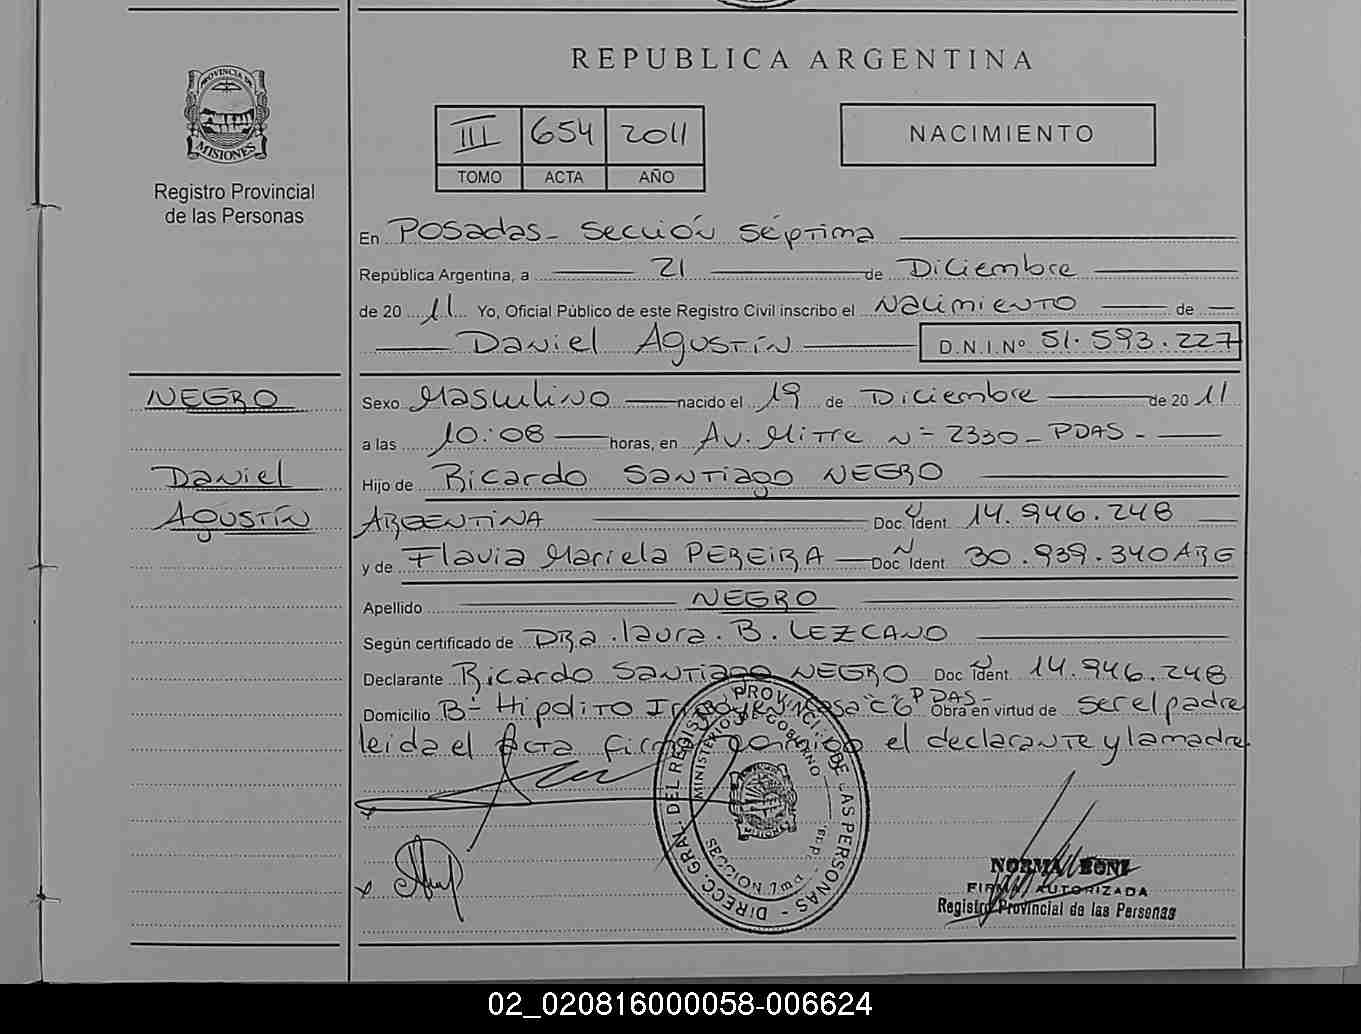 REPUBLICA ARGENTINA
PROVINCIA DE
MISIONES
Registro Provincial
de las Personas
III 654 2011
TOMO ACTA AÑO
NACIMIENTO
En Posadas - Sección Séptima
República Argentina, a 21 de Diciembre
de 2011 Yo, Oficial Público de este Registro Civil inscribo el Nacimiento de
Daniel Agustín D.N.I.Nº 51.593.227
NEGRO
Sexo Masculino nacido el 19 de Diciembre de 2011
a las 10:08 horas, en Av. Mitre Nº 2330 - PDAS -
Daniel
Hijo de Ricardo Santiago NEGRO
Agustín
ARGENTINA Doc. Ident. 14.946.248
y de Flavia Mariela PEREIRA Doc. Ident. 30.939.340 ARG
Apellido NEGRO
Según certificado de DRA. laura. B. LEZCANO
Declarante Ricardo Santiago NEGRO Doc. Ident. 14.946.248
Domicilio Bº Hipolito Casa PDAS - Obra en virtud de ser el padre
leida el Acta conmigo el declarante y la madre
DIRECC. GRAL. DEL REGISTRO PROVINCIAL DE LAS PERSONAS
MINISTERIO DE GOBIERNO
NORMA BONI
FIRMA AUTORIZADA
Registro Provincial de las Personas
02_020816000058-006624